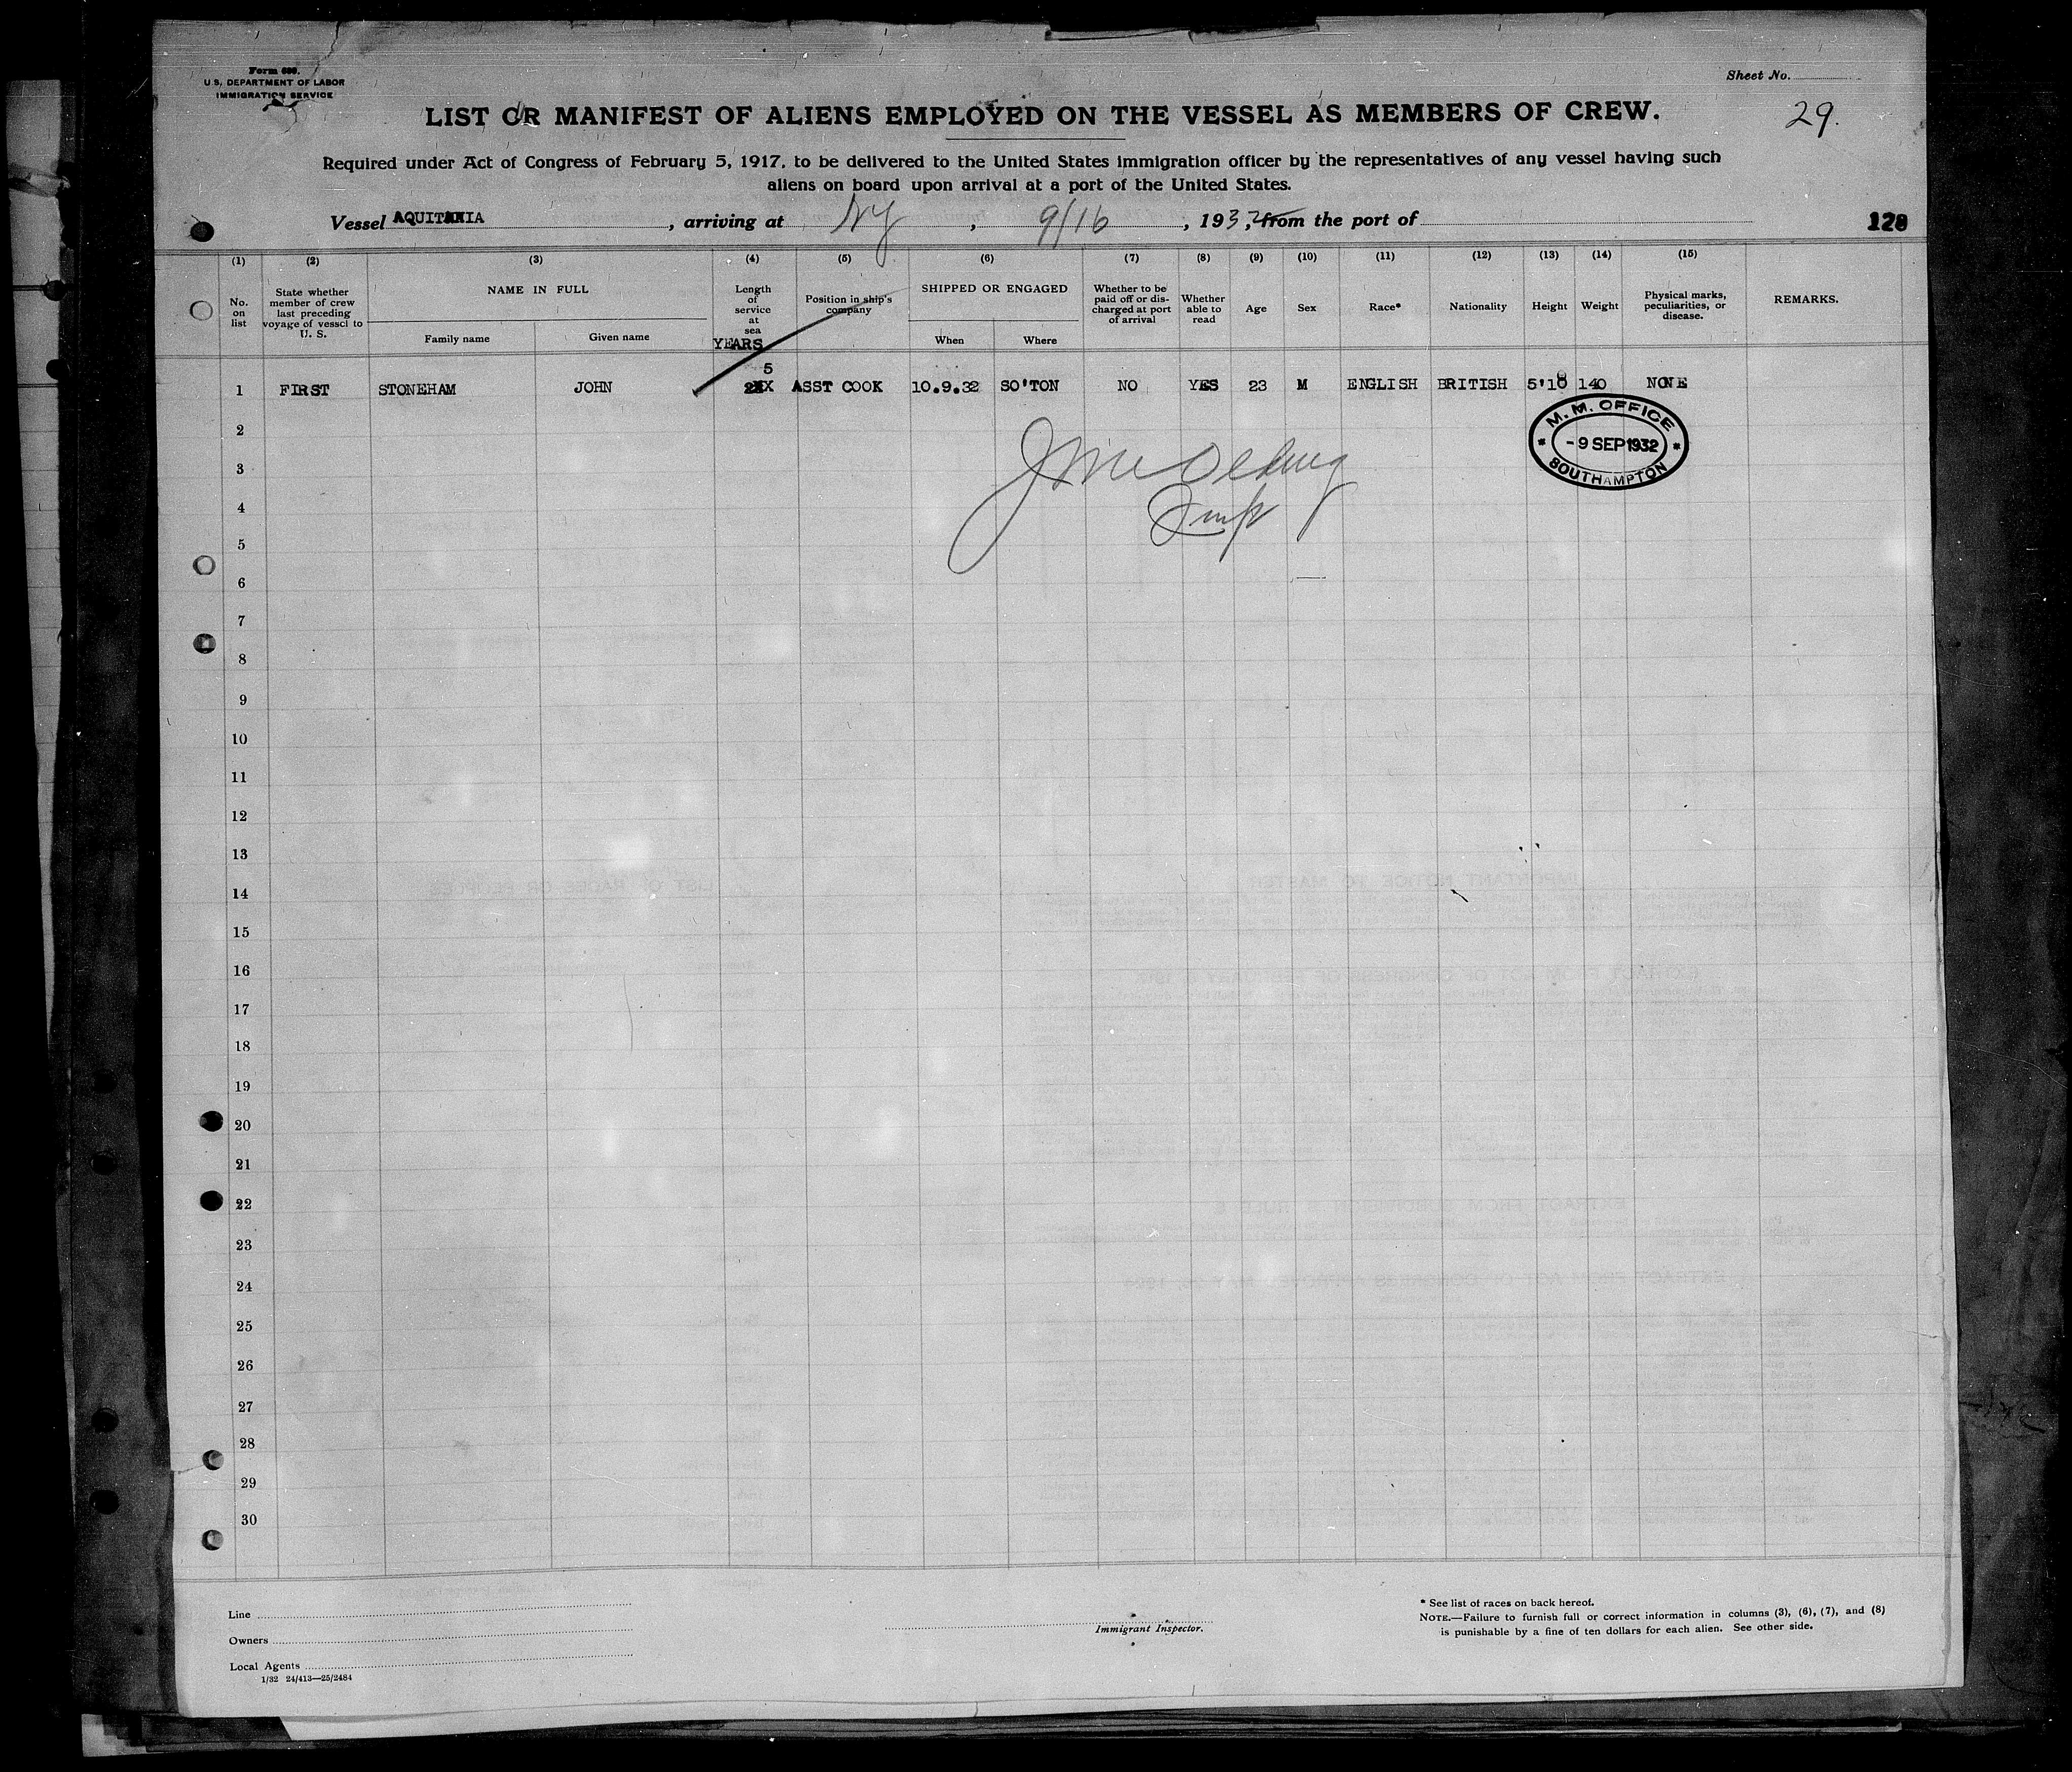 Form 680.
U.S. DEPARTMENT OF LABOR
IMMIGRATION SERVICE
Sheet No.
29.
LIST OR MANIFEST OF ALIENS EMPLOYED ON THE VESSEL AS MEMBERS OF CREW.
Required under Act of Congress of February 5, 1917, to be delivered to the United States immigration officer by the representatives of any vessel having such
aliens on board upon arrival at a port of the United States.
Vessel AQUITANIA, arriving at NY, 9/16, 1932, from the port of
128
(1) (2) (3) (4) (5) (6) (7) (8) (9) (10) (11) (12) (13) (14) (15)
No. on list
State whether member of crew last preceding voyage of vessel to U. S.
NAME IN FULL
Family name
Given name
Length of service at sea
YEARS
Position in ship's company
SHIPPED OR ENGAGED
When
Where
Whether to be paid off or discharged at port of arrival
Whether able to read
Age
Sex
Race*
Nationality
Height
Weight
Physical marks, peculiarities, or disease.
REMARKS.
1 FIRST STONEHAM JOHN 5 ASST COOK 10.9.32 SO'TON NO YES 23 M ENGLISH BRITISH 5'8 140 NONE
M. M. OFFICE
- 9 SEP 1932
SOUTHAMPTON
2
3
4
5
6
7
8
9
10
11
12
13
14
15
16
17
18
19
20
21
22
23
24
25
26
27
28
29
30
Line
Owners
Local Agents
1/32 24/413—25/2484
Immigrant Inspector.
* See list of races on back hereof.
NOTE.—Failure to furnish full or correct information in columns (3), (6), (7), and (8)
is punishable by a fine of ten dollars for each alien. See other side.